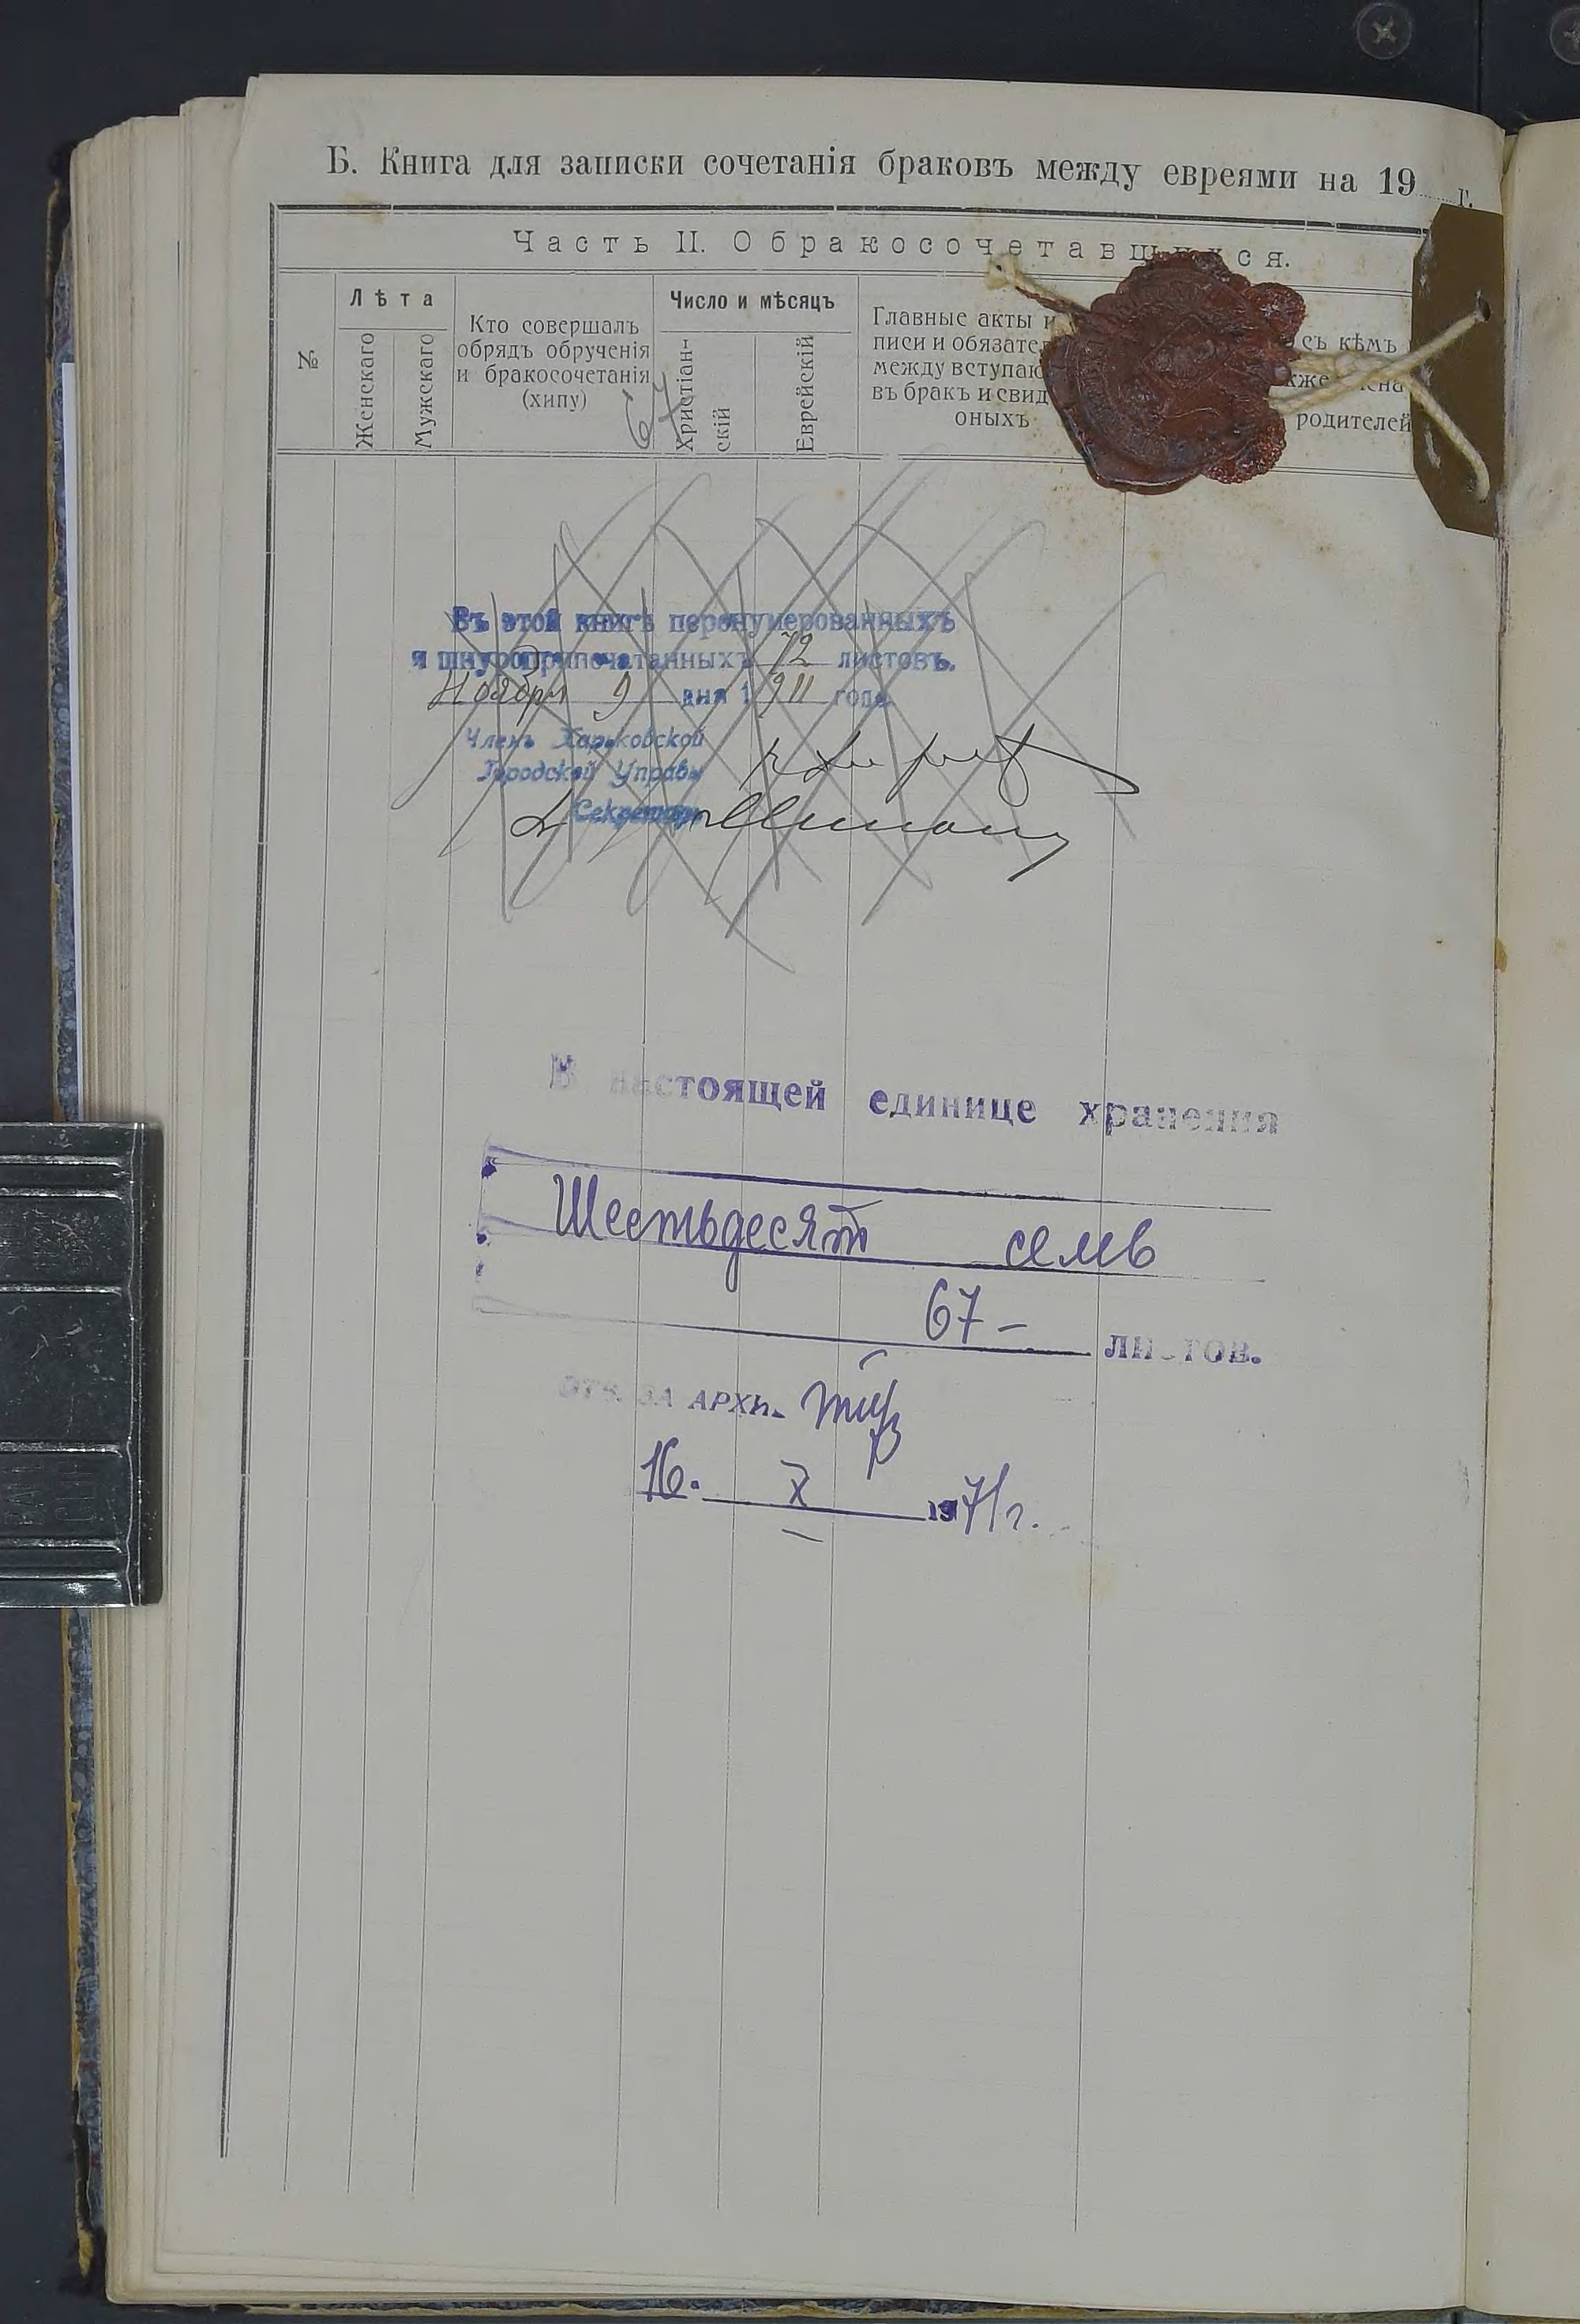 Б. Книга для записки сочетанія браковъ между евреями на 19 г.
Часть II. О бракосочетавшихся.
№
Лѣта
Женскаго
Мужскаго
Кто совершалъ
обрядъ обрученія
и бракосочетанія
(хипу)
67
Число и мѣсяцъ
Христіан-
скій
Еврейскій
Главные акты и
писи и обязател
между вступаю
въ бракъ и свид
оныхъ
съ кѣмъ
родителей
Въ этой книгѣ перенумерованныхъ
и шнуроприпечатанныхъ 72 листовъ.
Ноября 9 дня 1911 года
Членъ Харьковской
Городской Управы
Секретарь
В настоящей единице хранения
Шестьдесят семь
67 – листов.
ОТВ. ЗА АРХИВ
16. X 1971 г.